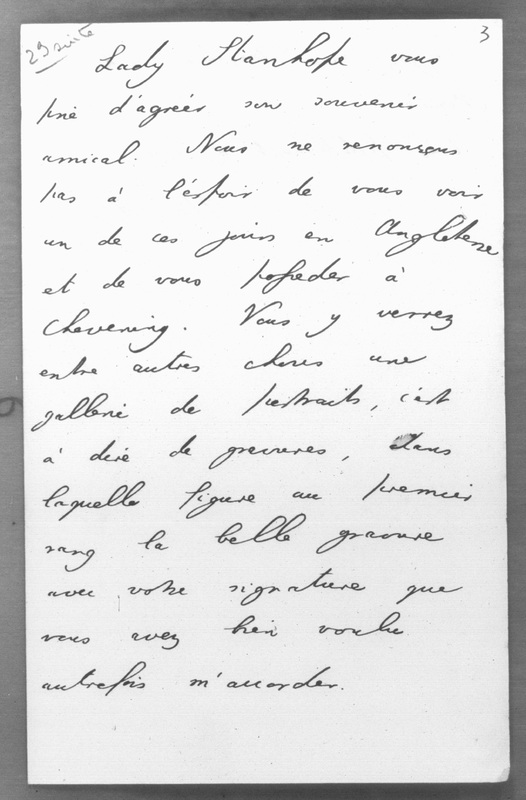 29 suite
3
Lady Stanhope vous
prie d'agréer son souvenir
amical. Nous ne renonçons
pas à l'éspoir de vous voir
un de ces jours en Angleterre
et de vous posseder à
Chevening. Vous y verrez
entre autres choses une
gallerie de portraits, c'est
à dire de gravures, dans
laquelle figure au premier
rang la belle gravure
avec votre signature que
vous avez bien voulu
autrefois m'accorder.